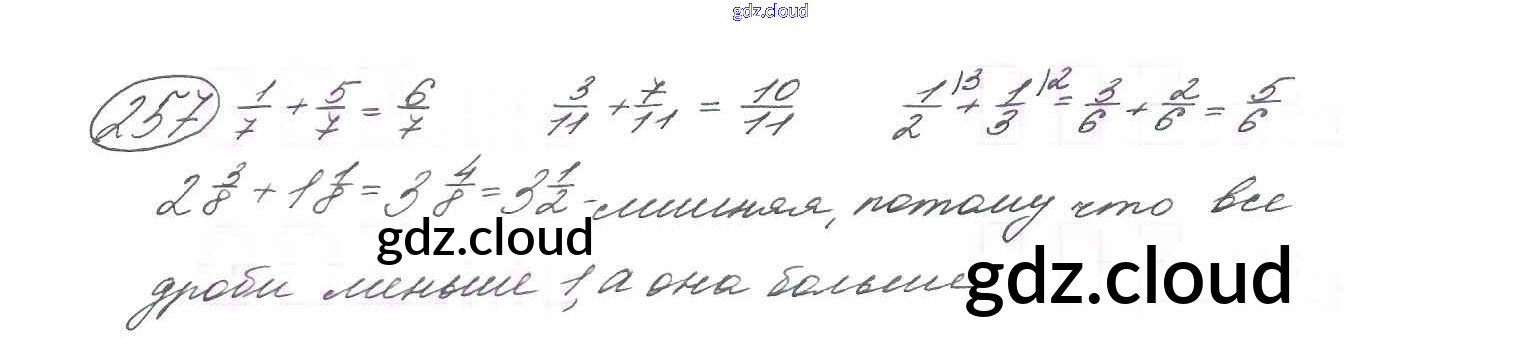 gdz.cloud
257 1/7 + 5/7 = 6/7 3/11 + 7/11 = 10/11 1/2 |3 + 1/3 |2 = 3/6 + 2/6 = 5/6
2 3/8 + 1 1/8 = 3 4/8 = 3 1/2 - лишняя, потому что все
gdz.cloud
дроби меньше 1, а она больше
gdz.cloud